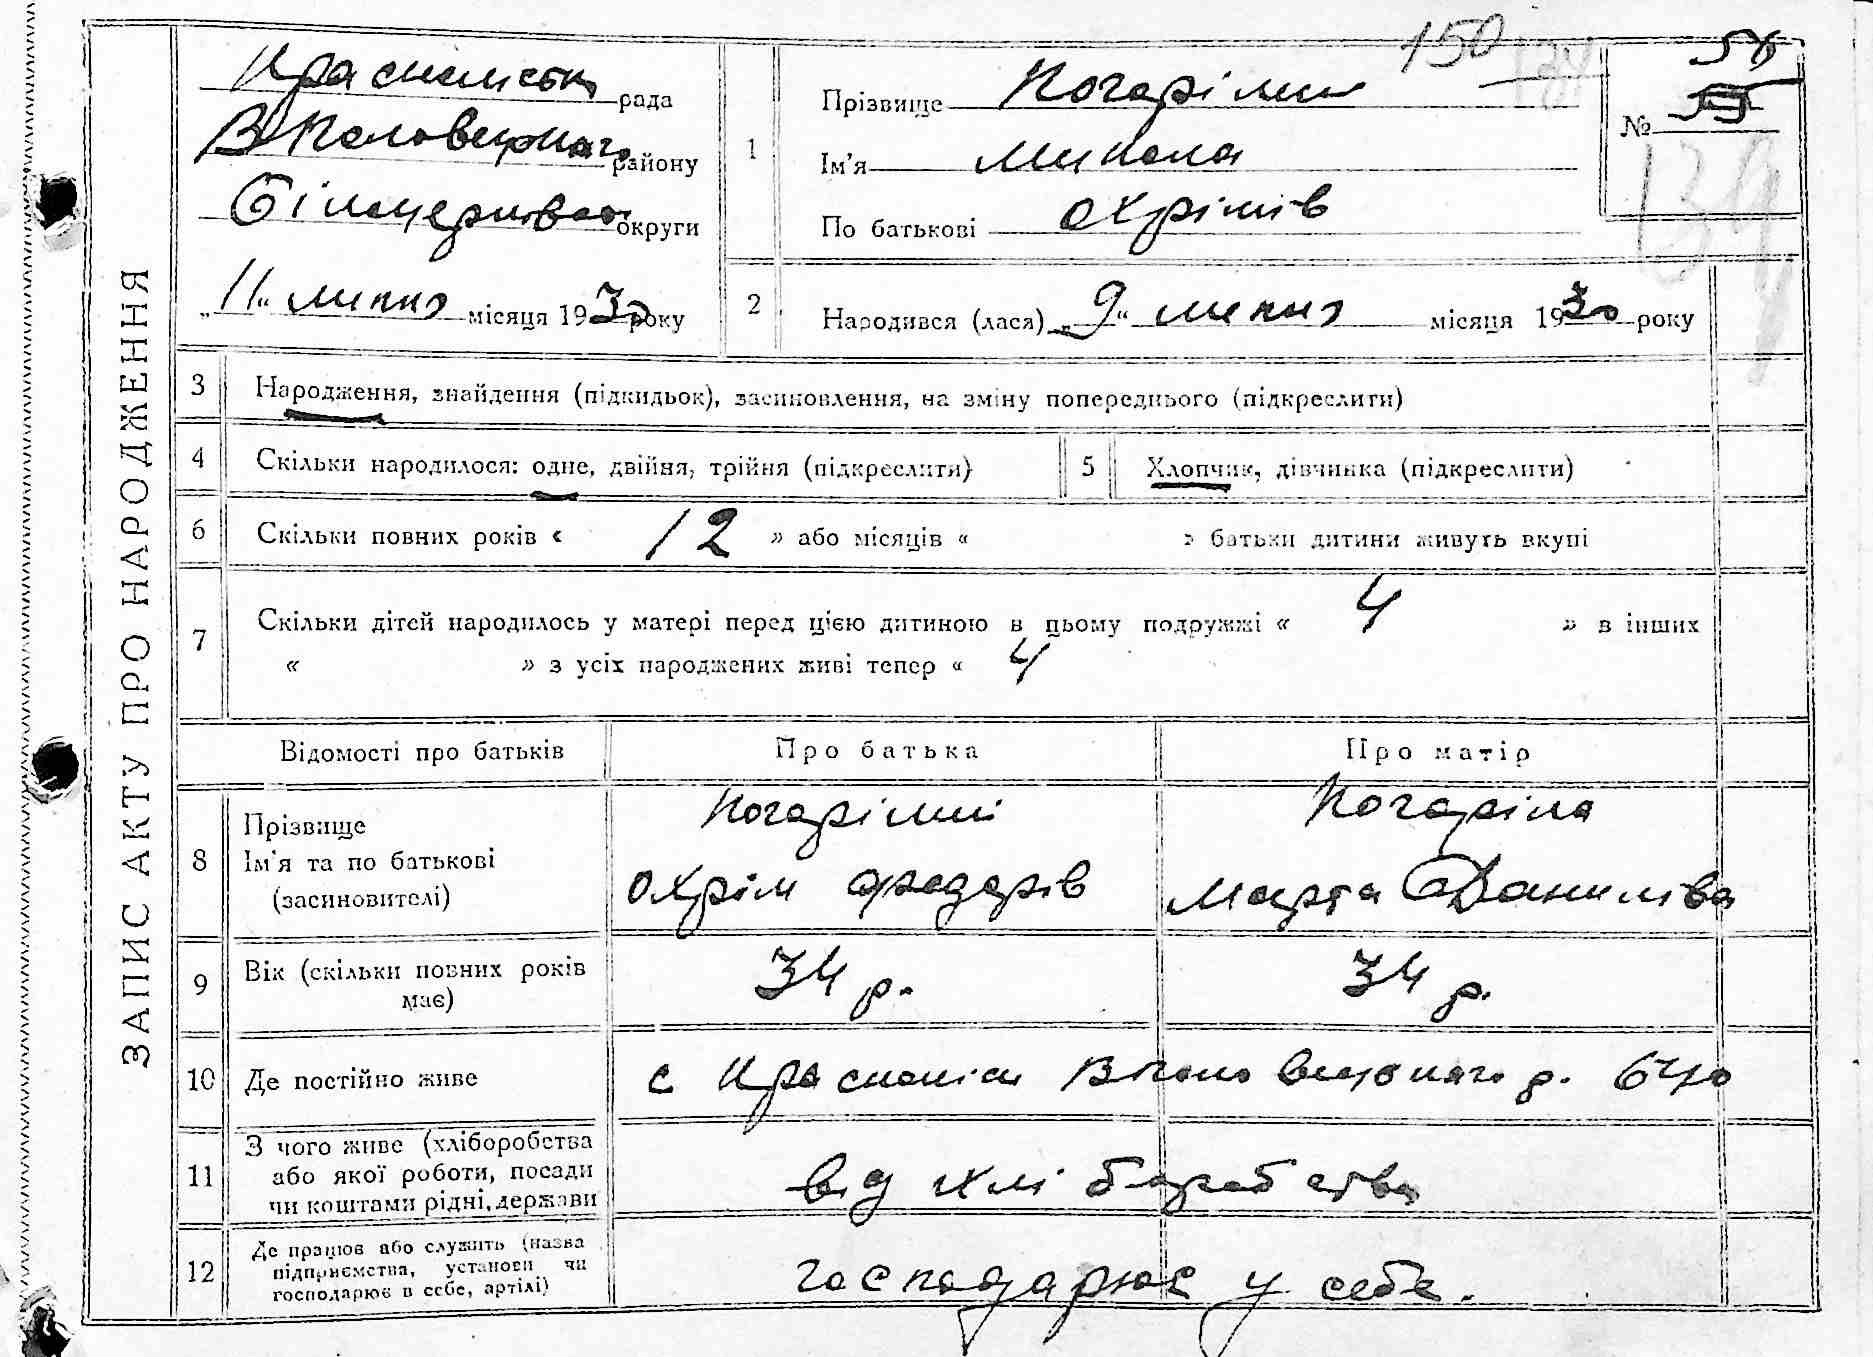 ЗАПИС АКТУ ПРО НАРОДЖЕННЯ
рада
району
округи
„11“ липня місяця 1930 року
150
1
Прізвище
Ім'я Микола
По батькові Охрімів
№ 56
134
2
Народився (лася) „9“ липня місяця 1930 року
3
Народження, знайдення (підкидьок), засиновлення, на зміну попереднього (підкреслити)
4
Скільки народилося: одне, двійня, трійня (підкреслити)
5
Хлопчик, дівчинка (підкреслити)
6
Скільки повних років « 12 » або місяців « » батьки дитини живуть вкупі
7
Скільки дітей народилось у матері перед цією дитиною в цьому подружжі « 4 » в інших
« » з усіх народжених живі тепер « 4
Відомості про батьків
Про батька
Про матір
8
Прізвище
Ім'я та по батькові
(засиновителі)
Охрім Федорів
Марта Данилівa
9
Вік (скільки повних років
має)
34 р.
34 р.
10
Де постійно живе
с
11
З чого живе (хліборобства
або якої роботи, посади
чи коштами рідні, держави
від хліборобства
12
Де працює або служить (назва
підприємства, установи чи
господарює в себе, артілі)
господарює у себе.